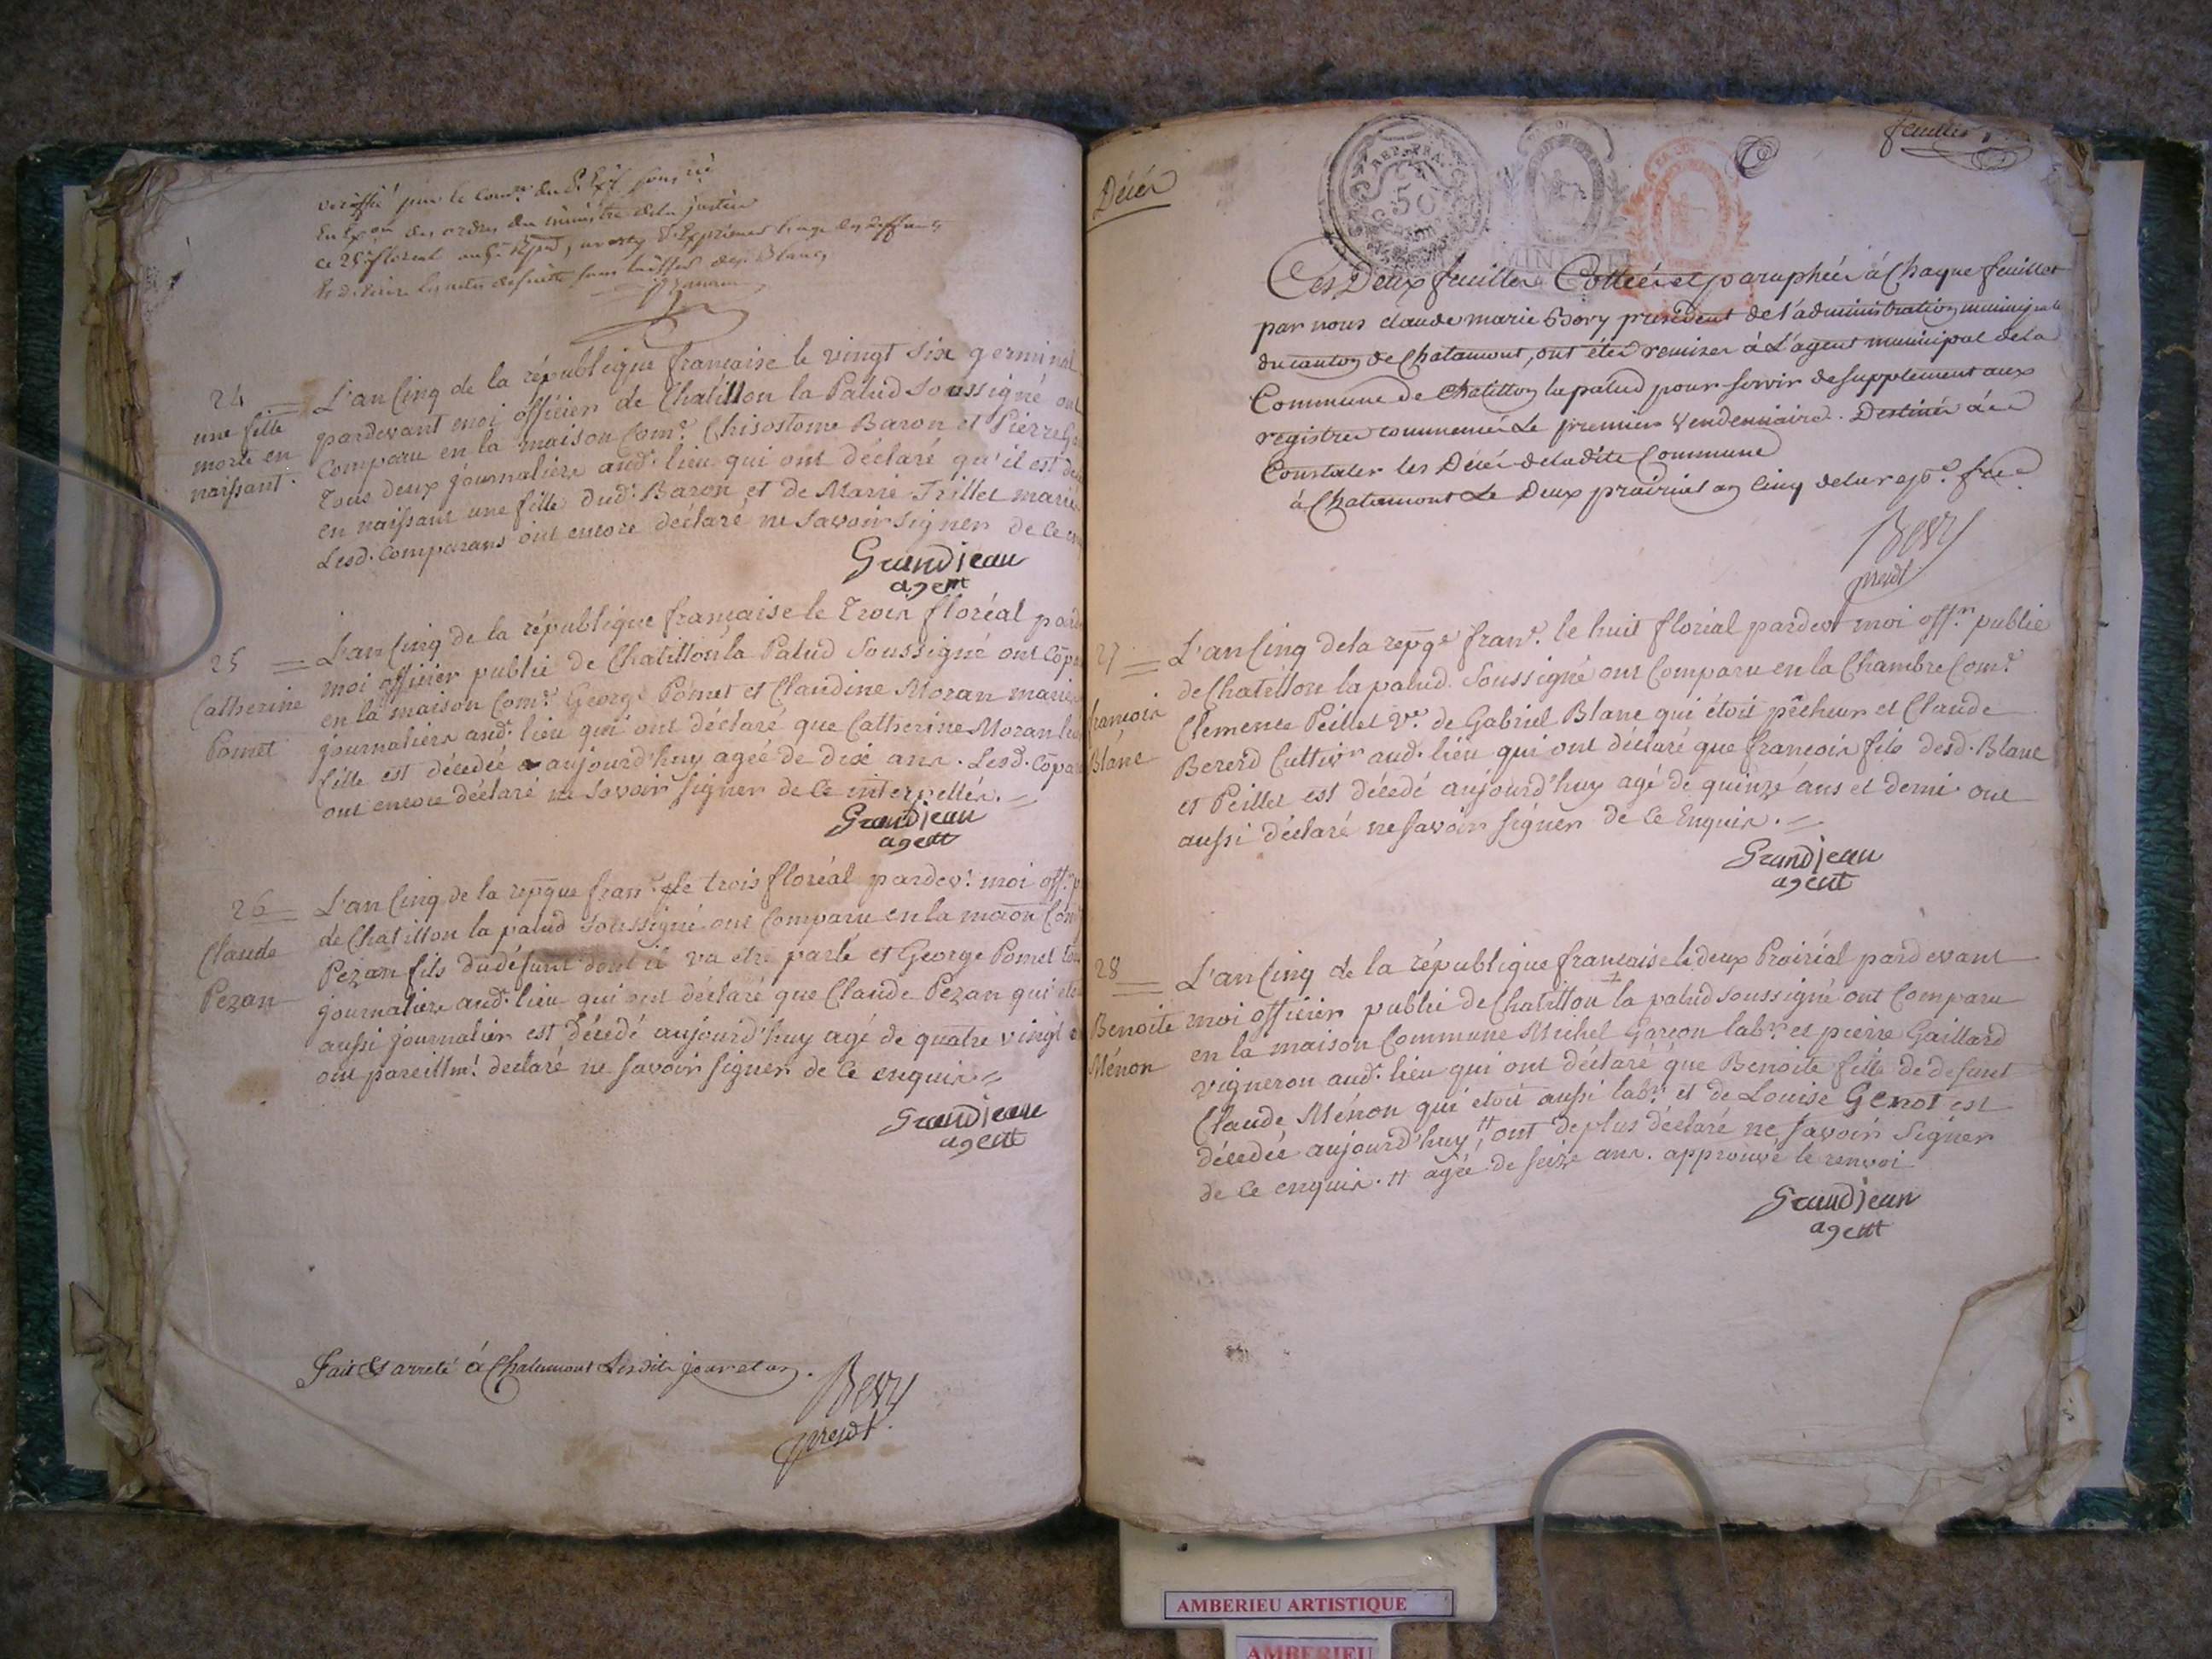 vérifié par le
des ordres du ministre de la justice
ce 25 floreal
sans laisser des Blancs
24
une fille
morte en
naissant.
L'an Cinq de la république française le vingt six germinal
pardevant moi officier de Chatillon la Palud Soussigné ont
Comparu en la maison Com.e Chisostome Baron et Pierre
Tous deux journaliers aud. lieu qui ont déclaré qu'il est
en naissant une fille dud. Baron et de Marie Trillet mariés
Lesd. Comparans ont encore déclaré ne Savoir Signer de Ce
Grandjean
agent
25
Catherine
Pomet
L'an Cinq de la république française le Trois floréal
moi officier public de Chatillon la Palud Soussigné ont
en la maison Com.e George Pomet et Claudine Moran mariés
journaliers aud. lieu qui ont déclaré que Catherine Moran
fille est décédée aujourd'huy agée de Dix ans. Lesd.
ont encore déclaré ne Savoir Signer de Ce interpellés.
Grandjean
agent
26
Claude
Pezan
L'an Cinq de la repque fran.e le trois floréal pardev.t moi off.r
de Chatillon la palud Soussigné ont Comparu en la maon
Pezan fils du défunt dont il va etre parlé et George Pomet
journaliers aud. lieu qui ont déclaré que Claude Pezan qui
aussi journalier est Décédé aujourd'huy agé de quatre vingt
ont pareillm.t declaré ne Savoir Signer de Ce enquis
Grandjean
agent
Fait & arreté à Chalamont Lesdits jour et an.
Bory
presdt.
Décés
REP. FRA.
50
feuillet
Ces Deux feuilles Cottées et paraphées à Chaque feuillet
par nous claude marie Bory president de l'administration municipale
du canton de Chalamont, ont étés remises à L'agent municipal de la
Commune de Chatillon la palud pour servir de supplement aux
registres commencés Le premier Vendemiaire. Destinés à
Constater les Décés de ladite Commune
à Chalamont Le Deux prairial an Cinq de la rep.e fr.e
Bory
presdt.
27
francois
Blanc
L'an Cinq de la repqe fran.e le huit floréal pardevt moi off.r public
de Chatillon la palud Soussigné ont Comparu en la Chambre Com.e
Clemence Peillet V.e de Gabriel Blanc qui étoit pêcheur et Claude
Bererd Cultiv.r aud. lieu qui ont déclaré que francois fils desd. Blanc
et Peillet est décedé aujourd'huy agé de quinze ans et demi ont
aussi déclaré ne Savoir Signer de Ce Enquis.
Grandjean
agent
28
Benoite
Ménon
L'an Cinq de la république francaise le deux Prairéal pardevant
moi officier public de Chatillon la palud soussigné ont Comparu
en la maison Commune Michel Garcon lab.r et pierre Gaillard
vigneron aud. lieu qui ont déclaré que Benoite fille de defunt
Claude Ménon qui etoit aussi lab.r et de Louise Genot est
décedée aujourd'huy #, ont de plus déclaré ne Savoir Signer
de Ce enquis. # agée de seize ans. approuvé le renvoi
Grandjean
agent
AMBERIEU ARTISTIQUE
AMBERIEU